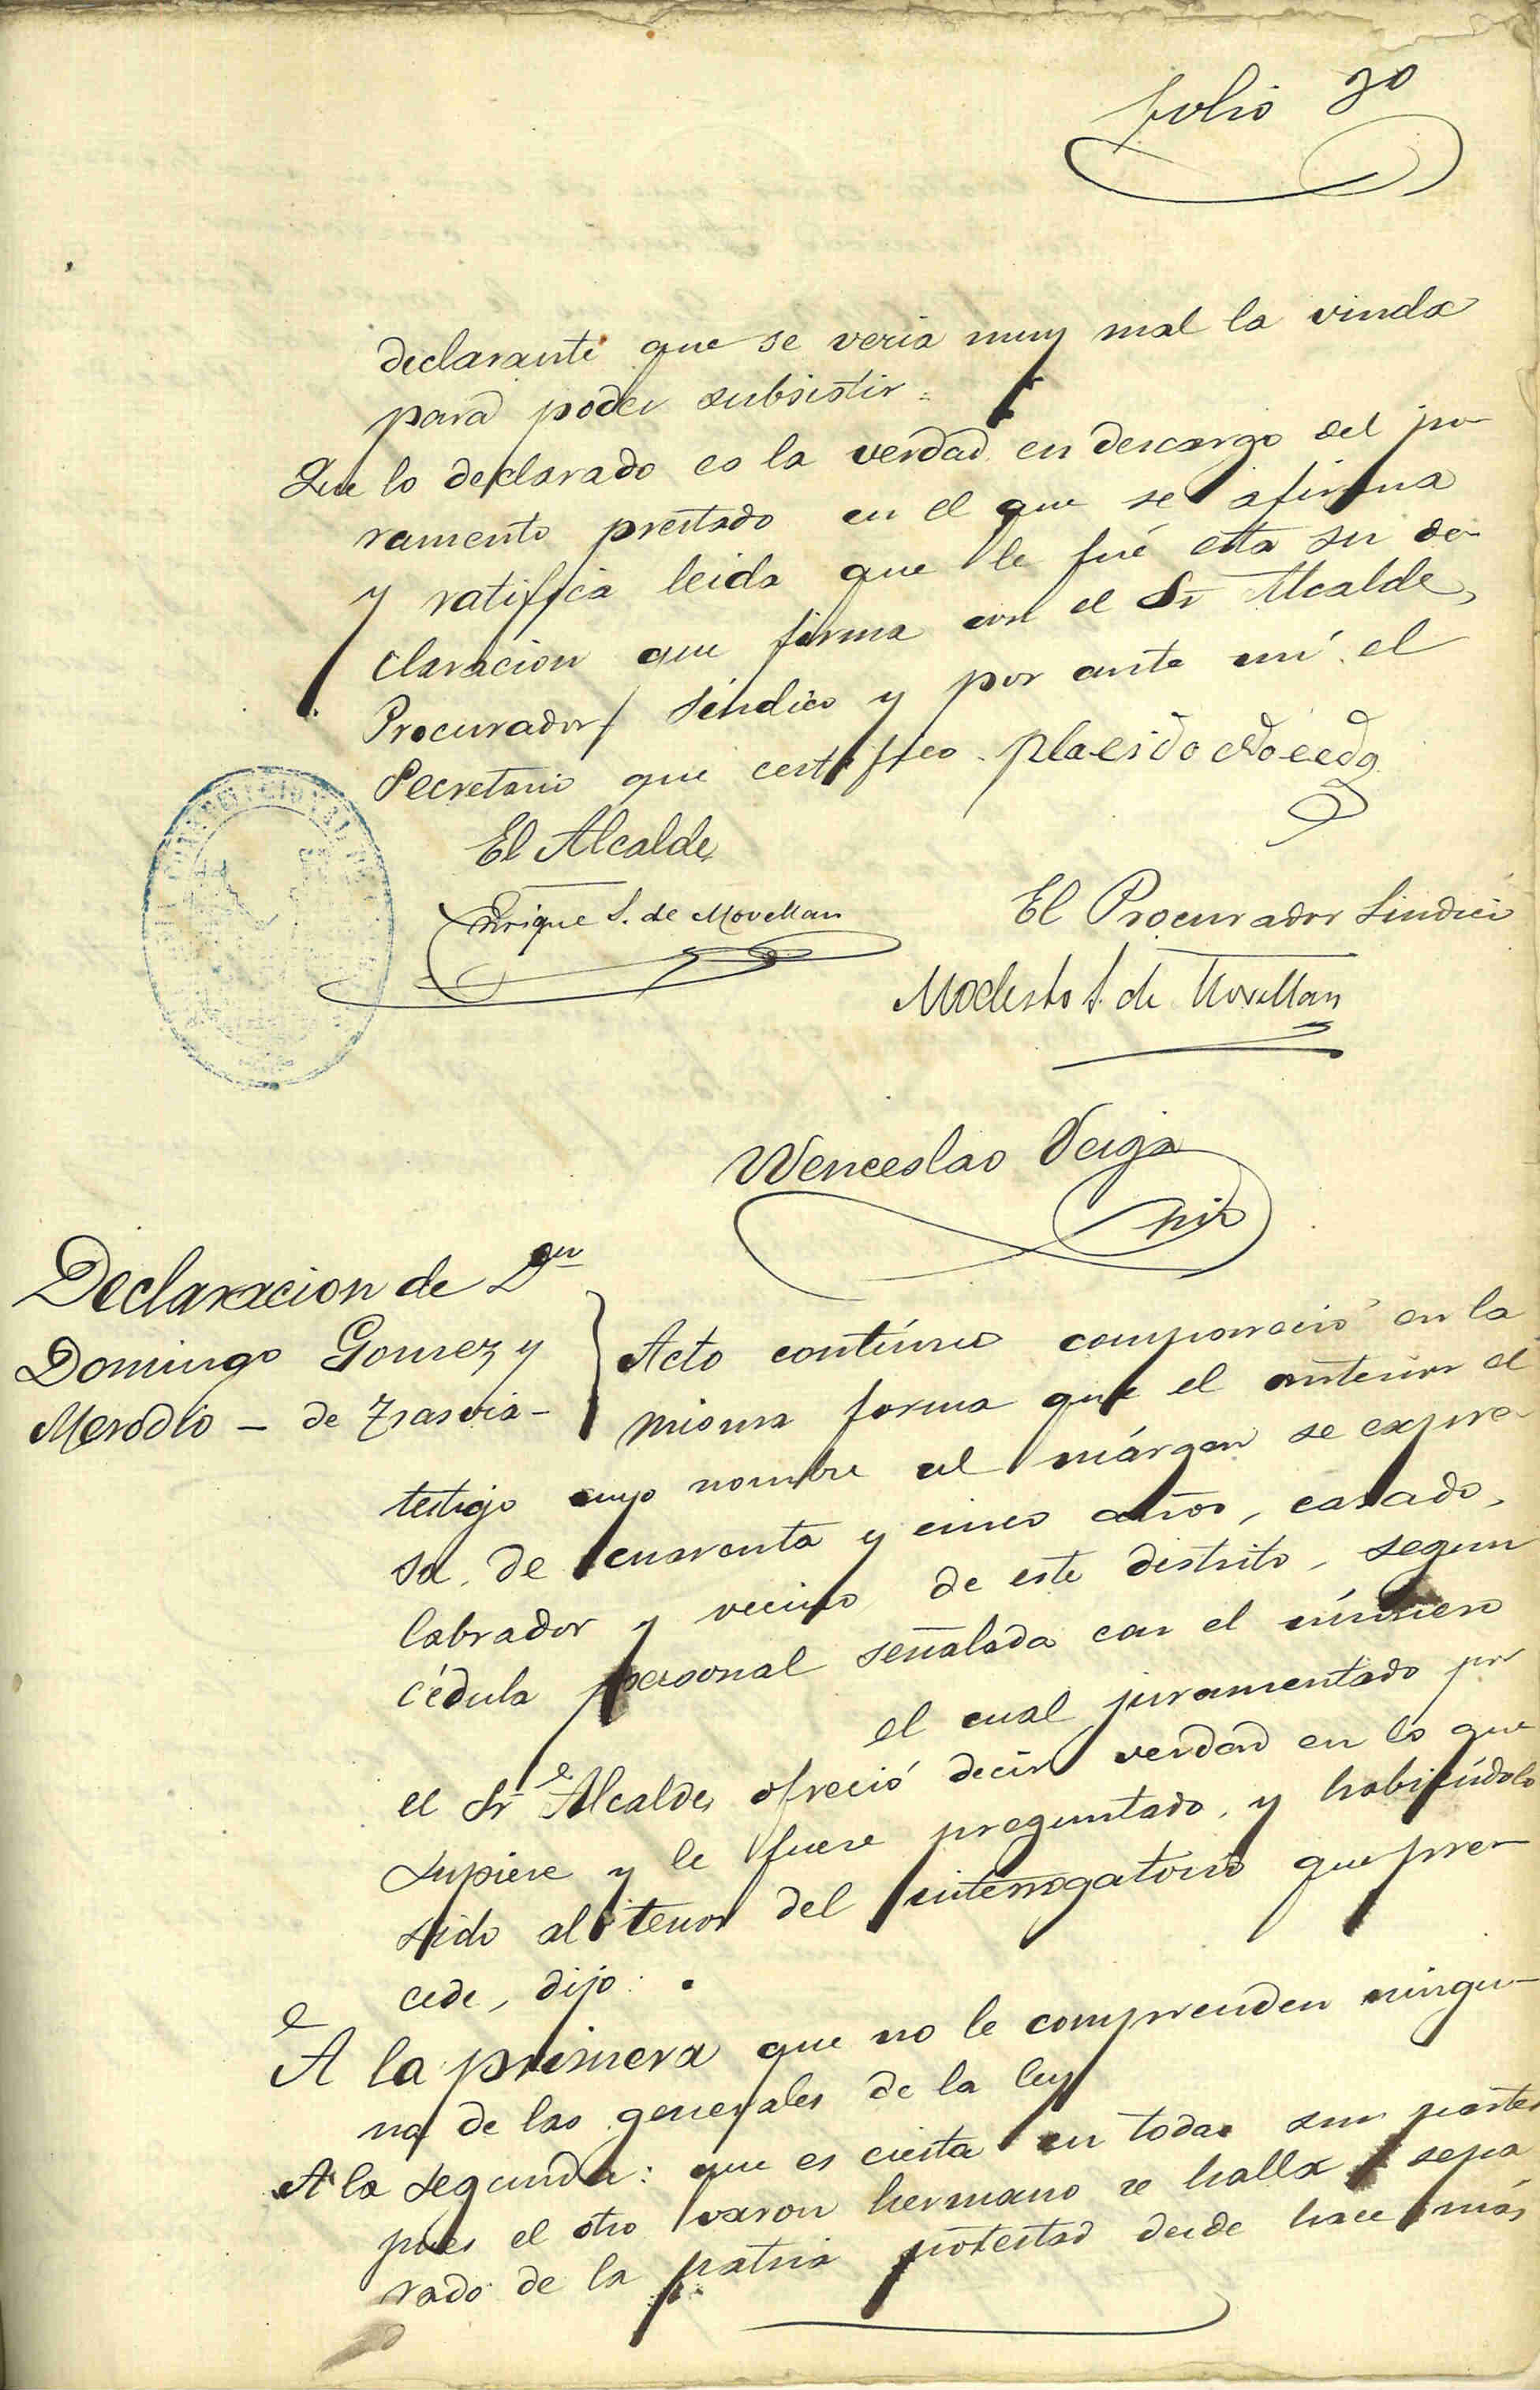 Folio 30
declarante que se veria muy mal la viuda
para poder subsistir.
Que lo declarado es la verdad en descargo del ju-
ramento prestado en el que se afirma
y ratifica leida que le fué esta su de-
claracion que firma con el Sr Alcalde,
Procurador Síndico y por ante mí el
Secretario que certifico. Placido
El Alcalde
Enrique S. de Movellan
El Procurador Sindico
Modesto S. de Movellan
Wenceslao Veiga
Declaracion de Dn
Domingo Gomez y
Merodio - de Trasvia -
Acto contínuo compareció en la
misma forma que el anterior el
testigo cuyo nombre al márgen se expre-
sa, de cuarenta y cinco años, casado,
labrador y vecino de este distrito, segun
cédula personal señalada con el número
el cual juramentado por
el Sr Alcalde, ofreció decir verdad en lo que
supiere y le fuere preguntado, y habiéndolo
sido al tenor del interrogatorio que pre-
cede, dijo:
A la primera que no le comprenden ningu-
na de las generales de la ley
A la segunda: que es cierta en todas sus partes
pues el otro varon hermano se halla sepa
rado de la patria potestad desde hace más